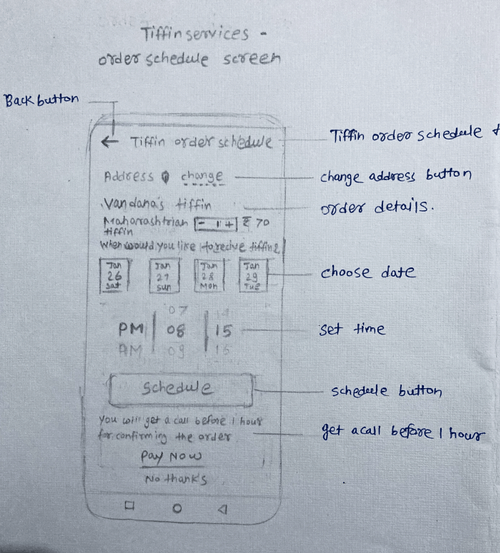 Tiffin services -
order schedule screen
Back button
← Tiffin order schedule
Tiffin order schedule
Address change
change address button
Vandana's tiffin
order details.
Maharashtrian - 1 + ₹ 70
tiffin
When would you like to recive tiffin?
Jan 26 Sat
Jan 27 Sun
Jan 28 Mon
Jan 29 Tue
choose date
07
PM 08 15
AM 09 15
set time
Schedule
schedule button
You will get a call before 1 hour
for confirming the order
get a call before 1 hour
Pay Now
No thanks